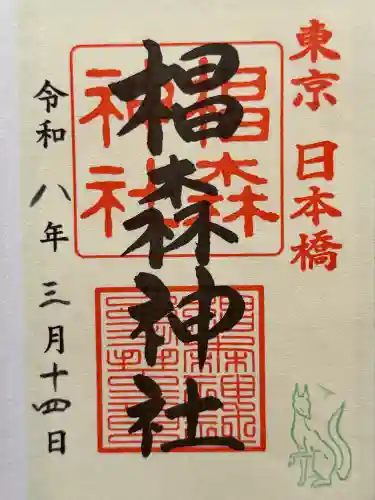 東京 日本橋
椙森神社
椙森
神社
令和八年三月十四日